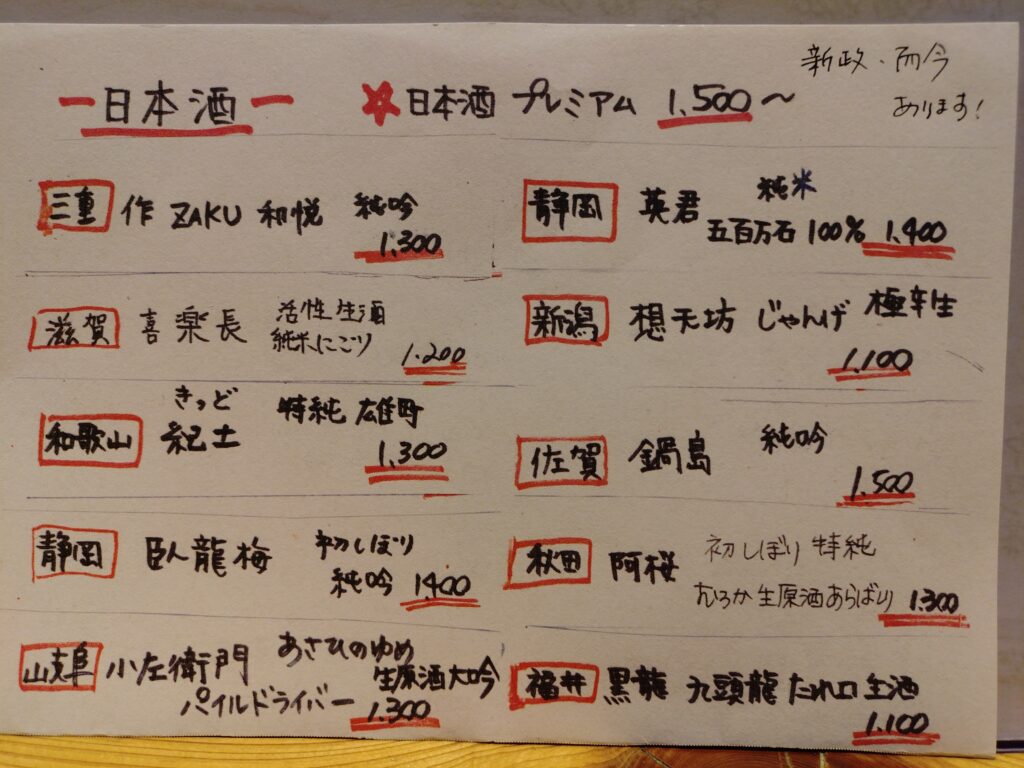 ー日本酒ー
☆日本酒 プレミアム 1,500〜
新政・而今
あります!
三重 作 ZAKU 和悦 純吟
1,300
滋賀 喜楽長 活性生酒
純米にごり 1,200
きっど
和歌山 紀土 特純 雄町
1,300
静岡 臥龍梅 初しぼり
純吟 1,400
岐阜 小左衛門 あさひのゆめ
生原酒大吟
パイルドライバー 1,300
静岡 英君 純米
五百万石 100% 1,400
新潟 想天坊 じゃんげ 極辛生
1,100
佐賀 鍋島 純吟
1,500
秋田 阿桜 初しぼり 特純
むろか生原酒あらばしり 1,300
福井 黒龍 九頭龍 たれ口 生酒
1,100